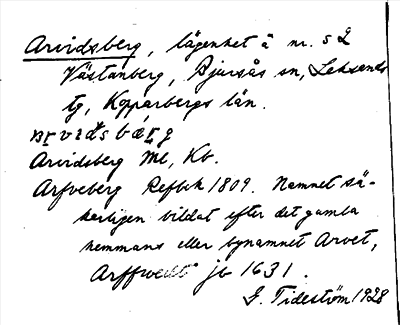 Arvidsberg, lägenhet å nr. 5 L
Västanberg, Bjursås sn, Leksands
tg, Kopparbergs län.
arvidsbærg
Arvidsberg Me, Kb.
Arfveberg Reftek 1809. Namnet sä-
kerligen bildat efter det gamla
hemmans eller bynamnet Arvet,
Arffwedt jb 1631.
G. Tideström 1928